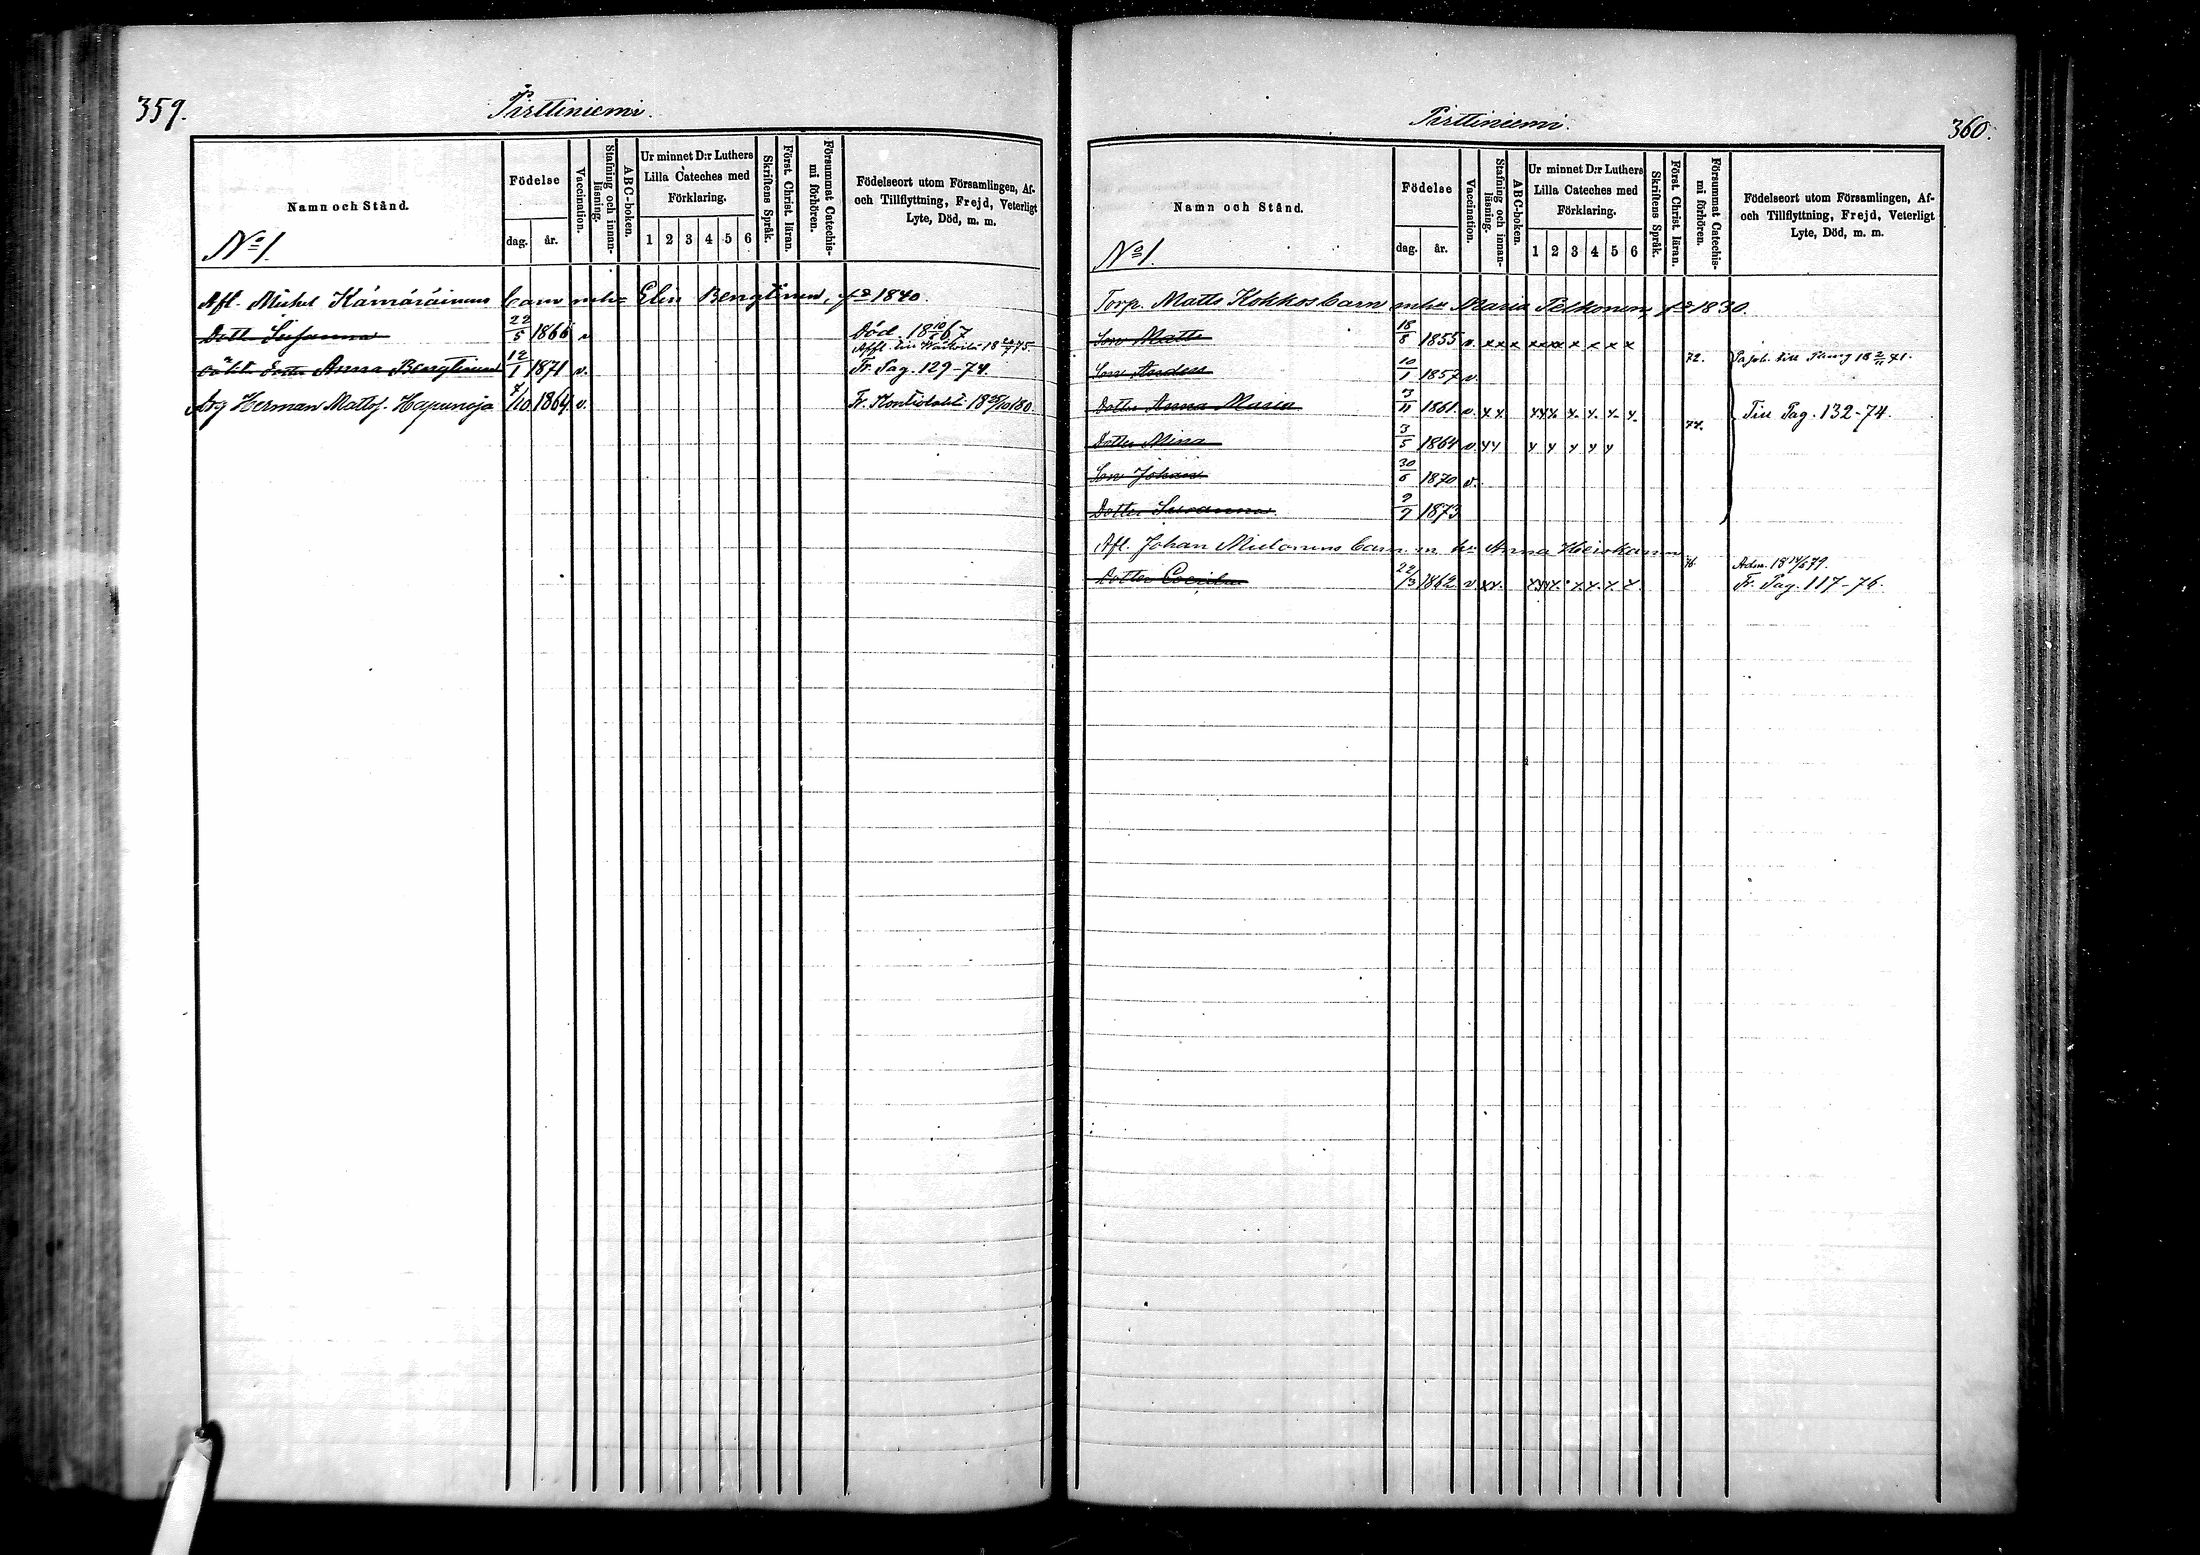 359.
Pirttiniemi.
Namn och Stånd.
Födelse
dag.
år.
Vaccination.
Stafning och innan-läsning.
ABC-boken.
Ur minnet D:r Luthers
Lilla Cateches med
Förklaring.
1 2 3 4 5 6
Skriftens Språk.
Först. Christ. läran.
Försummat Catechis-mi förhören.
Födelseort utom Församlingen, Af-
och Tillflyttning, Frejd, Veterligt
Lyte, Död, m. m.
No 1.
Afl. Mickel Kämäräinens barn mhu Elin Bengtinen, fo 1840.
Dott. Susanna 22/5 1866 v Död. 18 10/6 67
18 20/7 75.
Dotter Anna Bengtinen 12/1 1871 v. Fr. Pag. 129-74.
Herman Matts. Hapuneja 7/10 1864 v. Fr. Kontiolaks 18 25/10 80
Pirttiniemi.
360.
Namn och Stånd.
Födelse
dag.
år.
Vaccination.
Stafning och innan-läsning.
ABC-boken.
Ur minnet D:r Luthers
Lilla Cateches med
Förklaring.
1 2 3 4 5 6
Skriftens Språk.
Först. Christ. läran.
Försummat Catechis-mi förhören.
Födelseort utom Församlingen, Af-
och Tillflyttning, Frejd, Veterligt
Lyte, Död, m. m.
No 1.
Torp. Matts Kokkos barn mhu Maria Pelkonen, fo 1830.
Son Matts 18/8 1855 v. x x x xxxx x x x x
72.
Son Anders 10/1 1857 v.
Dotter Anna Maria 3/11 1861. v. x x xxx x. x. x. x. Till Pag. 132-74.
74.
Dotter Mina 3/5 1864 v. xx x x x x x
Son Johan 30/6 1870 v.
Dotter Susanna. 2/9 1873
Afl. Johan Mielonens barn m. hu Anna Heiskanen
76. Adm. 18 14/6 79.
Dotter Cecilia 22/3 1862 v. xx. xxxx. x. x. x. x. Fr. Pag. 117-76.